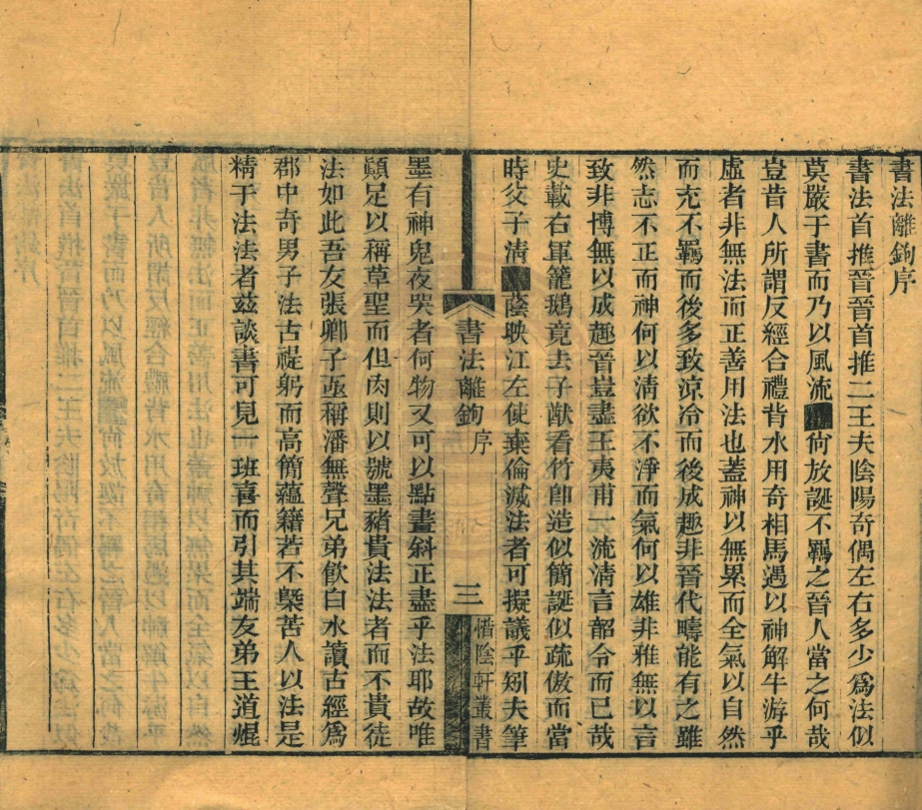 書法離鉤序
書法首推晉晉首推二王夫陰陽奇偶左右多少爲法似
莫嚴于書而乃以風流何放誕不羈之晉人當之何哉
豈昔人所謂反經合禮背水用奇相馬遇以神解牛游乎
虛者非無法而正善用法也蓋神以無累而全氣以自然
而充不羈而後多致涼冷而後成趣非晉代疇能有之雖
然志不正而神何以清欲不淨而氣何以雄非雅無以言
致非博無以成趣晉豈盡王夷甫一流清言韶令而已哉
史載右軍籠鵝竟去子猷看竹即造似簡誕似疏傲而當
時父子清蔭映江左使棄倫滅法者可擬議乎矧夫筆
書法離鉤 序
三
惜陰軒叢書
墨有神鬼夜哭者何物又可以點畫斜正盡乎法耶故唯
顛足以稱草聖而但肉則以號墨豬貴法法者而不貴徒
法如此吾友張卿子亟稱潘無聲兄弟飲白水讀古經爲
郡中奇男子法古禔躬而高簡蘊籍若不槩苦人以法是
精于法法者茲談書可見一班喜而引其端友弟王道焜